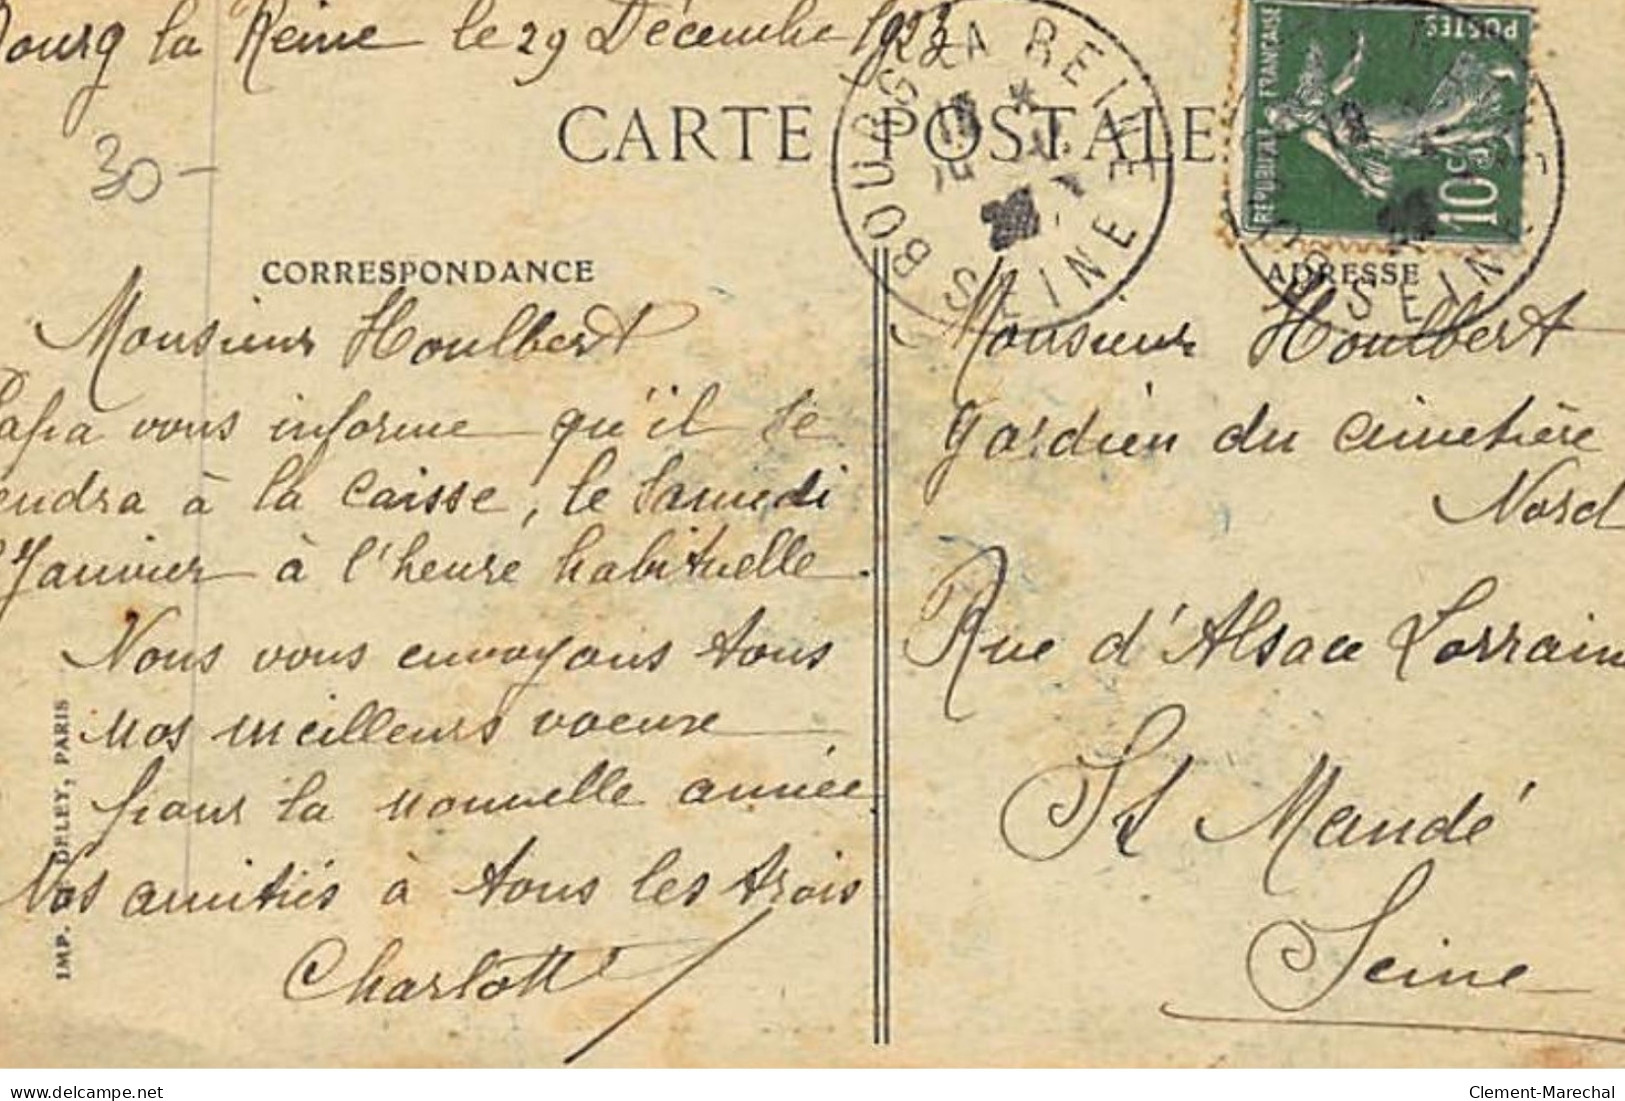 Bourg la Reine le 29 Décembre 1923
CARTE POSTALE
30 -
BOURG LA REINE
SEINE
REPUBLIQUE FRANÇAISE
POSTES
10c
SEINE
CORRESPONDANCE
Monsieur Houlbert
Papa vous informe qu'il se
rendra à la caisse, le Samedi
Janvier à l'heure habituelle.
Nous vous envoyons tous
nos meilleurs voeux
pour la nouvelle année.
Nos amitiés à tous les trois
Charlotte
IMP. DELEY, PARIS
ADRESSE
Monsieur Houlbert
gardien du cimetière
Nord
Rue d'Alsace Lorraine
St Mandé
Seine
delcampe.net
Clement-Marechal